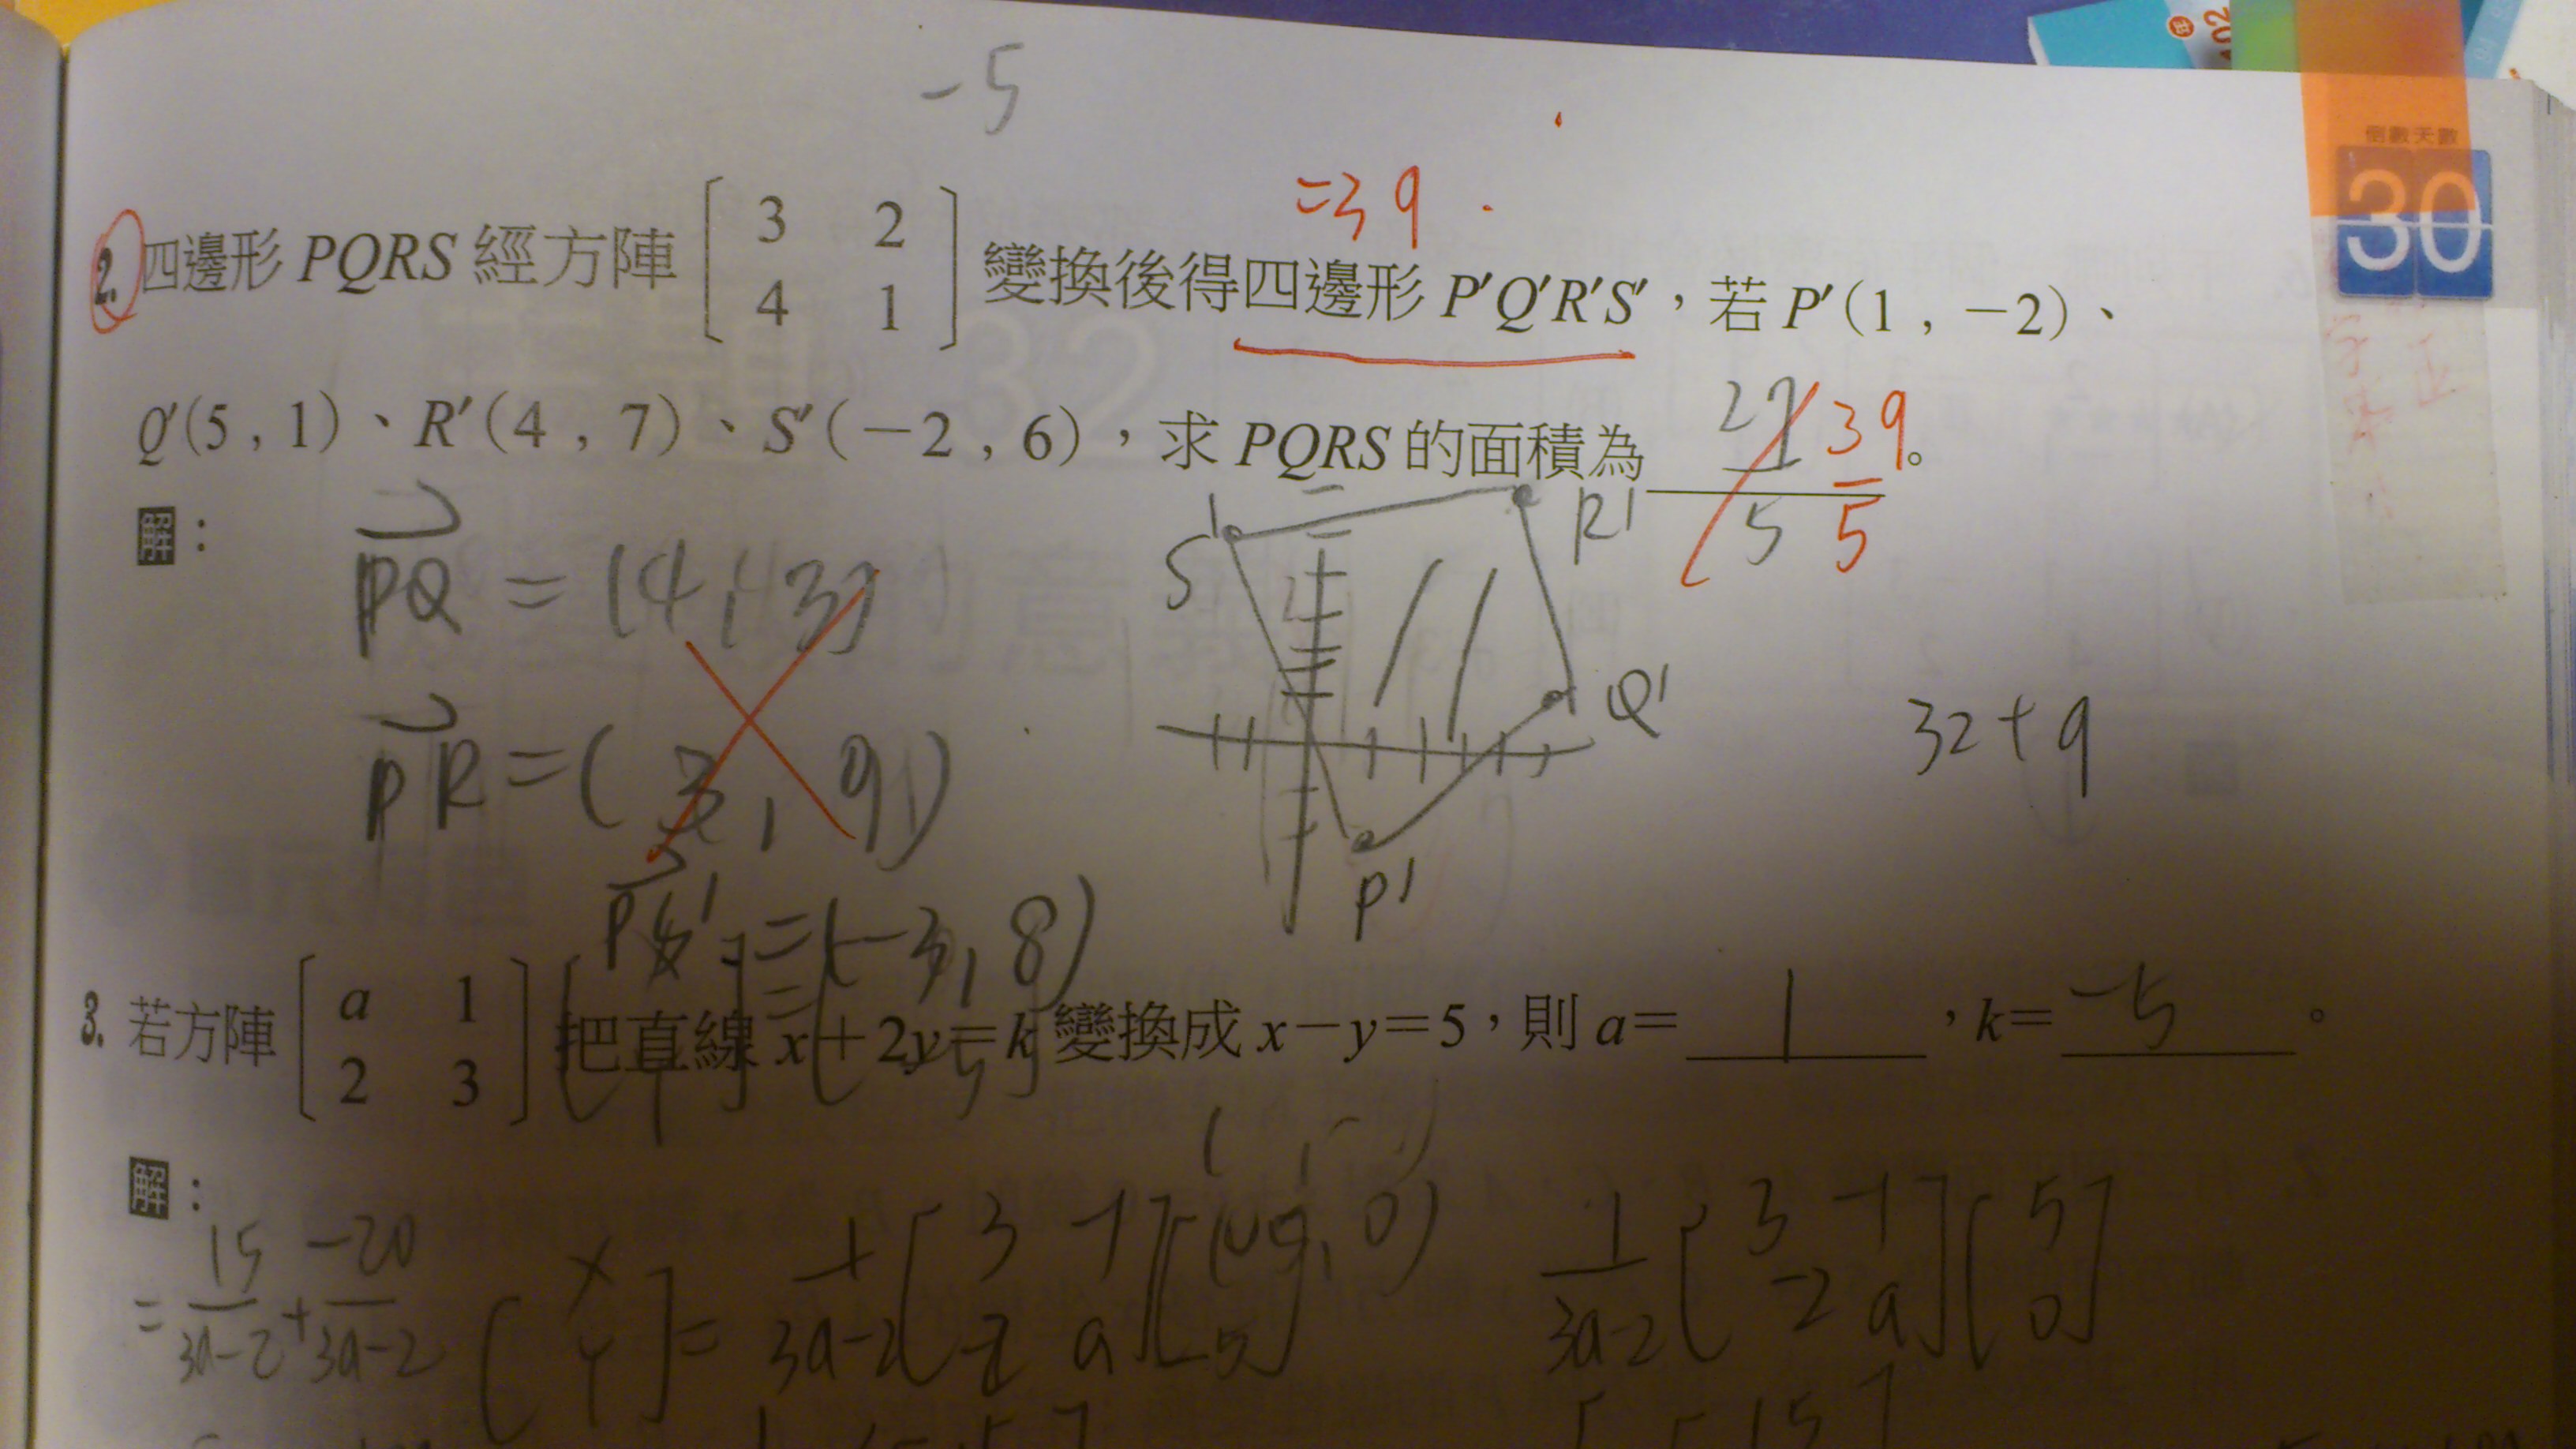 -5
倒數天數
30
=39
2. 四邊形 PQRS 經方陣 [3 2 4 1] 變換後得四邊形 P′Q′R′S′,若 P′(1 , −2)、
Q′(5 , 1)、R′(4 , 7)、S′(−2 , 6),求 PQRS 的面積為 27/5 39/5 。
解:
PQ = (4, 3)
S′ R′
PR = (3, 9)
Q′
32+9
P′
=(-3, 8)
3. 若方陣 [a 1 2 3] 把直線 x+2y=k 變換成 x−y=5,則 a= 1 ,k= -5 。
解:
= 15/3a-2 + -20/3a-2
[x y] = 1/3a-2 [3 -1 -2 a]
1/3a-2 [3 -1 -2 a] [5 0]